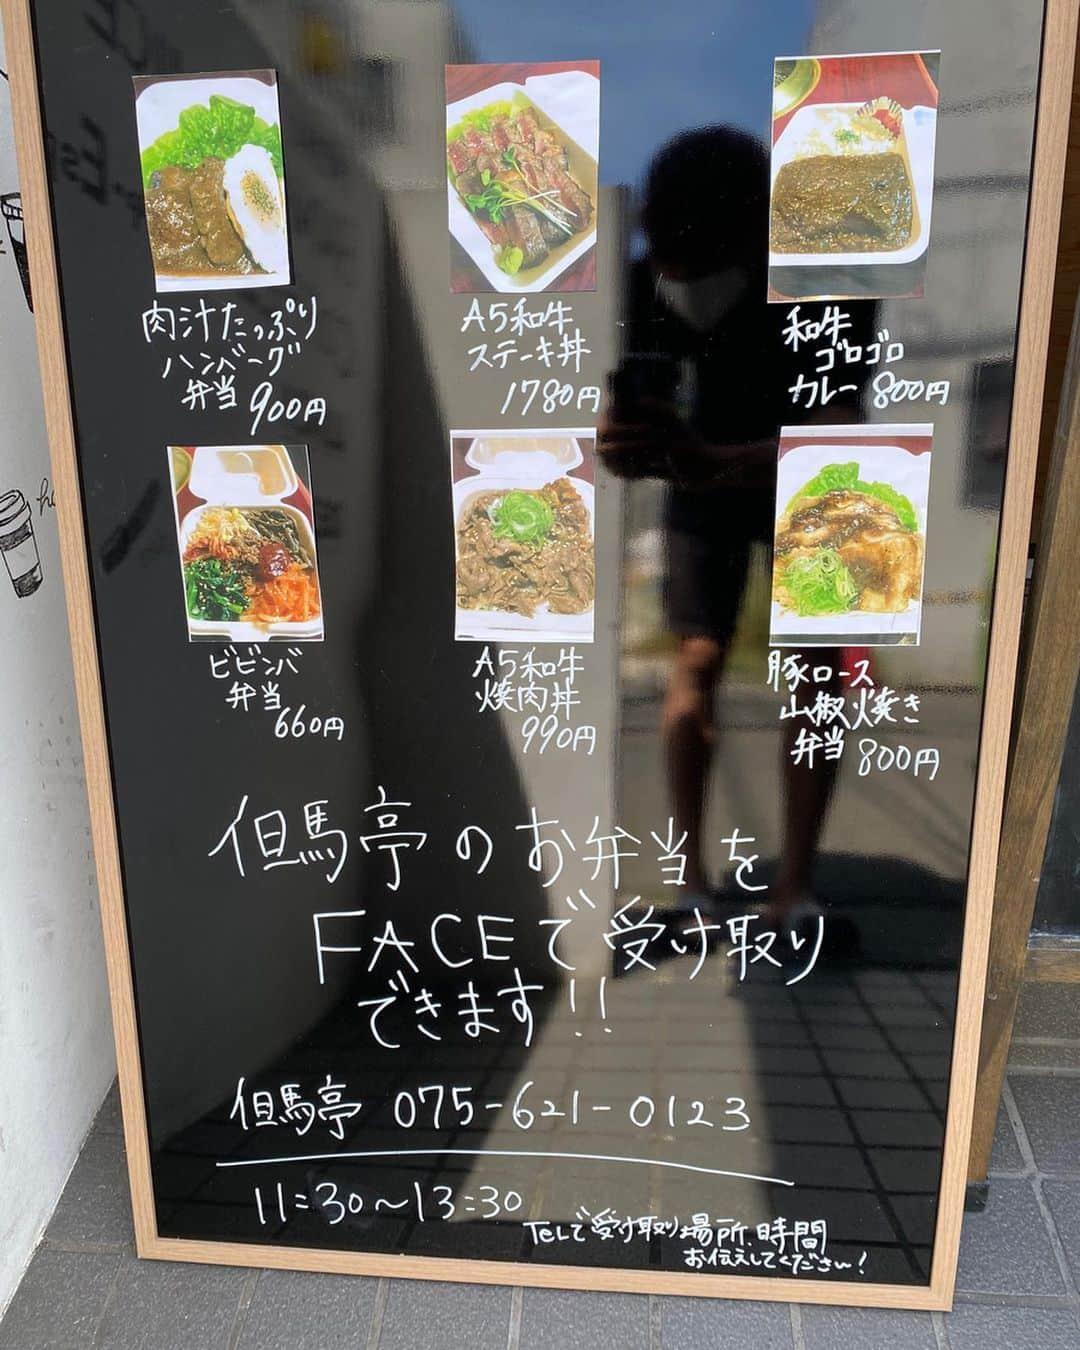 肉汁たっぷり
ハンバーグ
弁当 900円
A5和牛
ステーキ丼
1780円
和牛
ゴロゴロ
カレー 800円
ビビンバ
弁当
660円
A5和牛
焼肉丼
990円
豚ロース
山椒焼き
弁当 800円
但馬亭のお弁当を
FACEで受け取り
できます!!
但馬亭 075-621-0123
11:30〜13:30
Telで受け取り場所、時間
お伝えしてください!